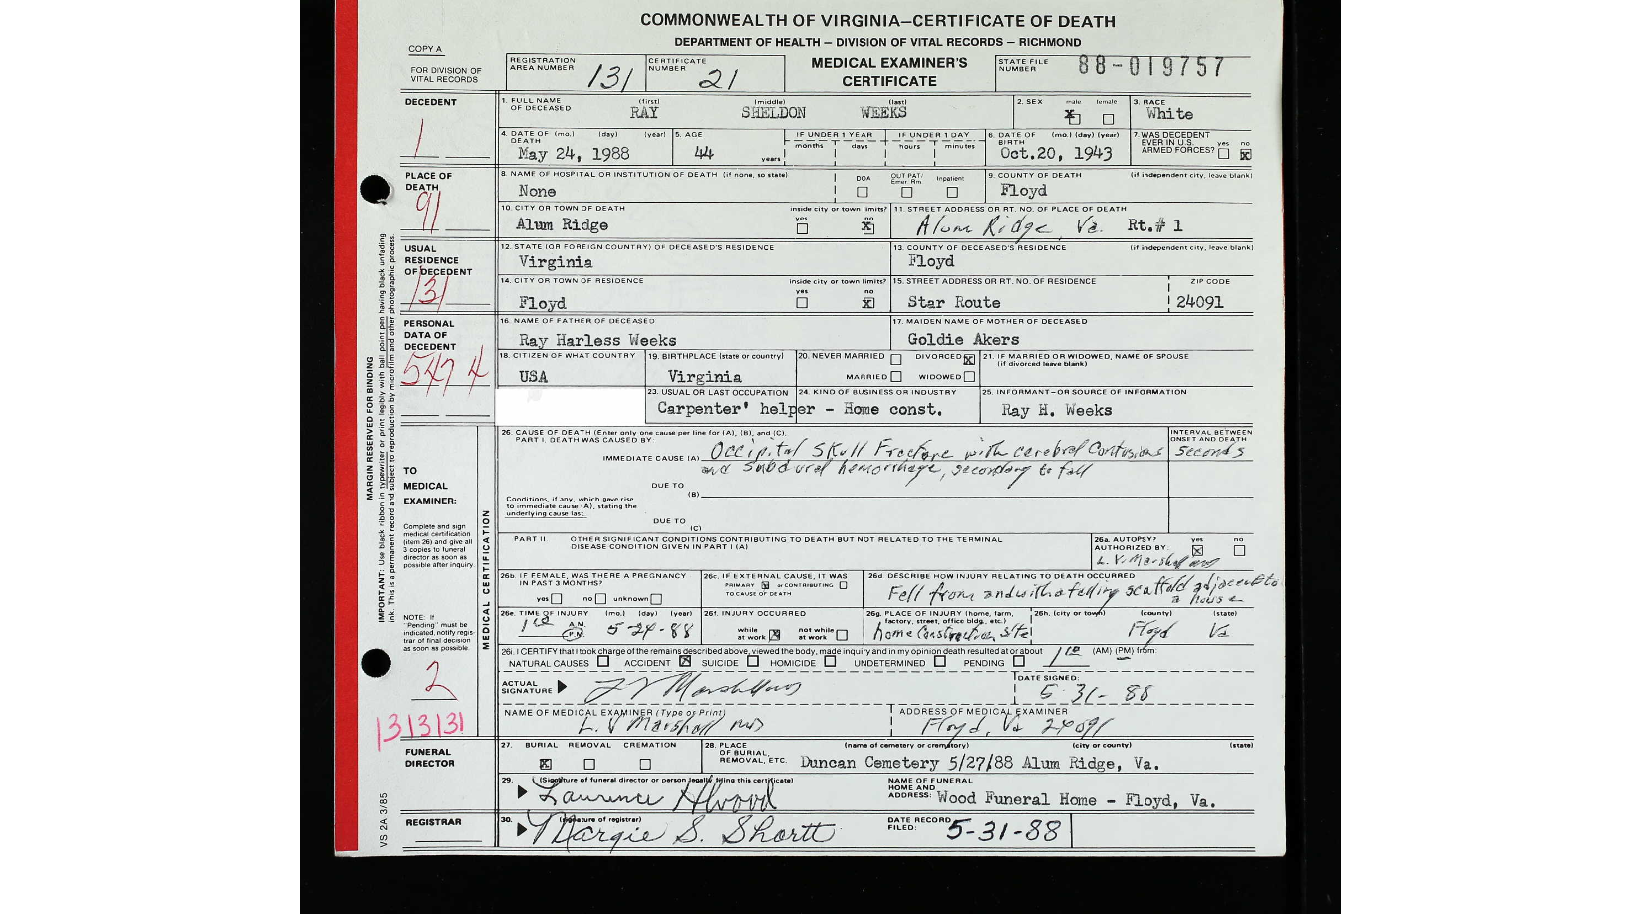 COMMONWEALTH OF VIRGINIA—CERTIFICATE OF DEATH
DEPARTMENT OF HEALTH — DIVISION OF VITAL RECORDS — RICHMOND
COPY A
FOR DIVISION OF VITAL RECORDS
REGISTRATION AREA NUMBER 131
CERTIFICATE NUMBER 21
MEDICAL EXAMINER'S CERTIFICATE
STATE FILE NUMBER 88-019757
DECEDENT
1
1. FULL NAME OF DECEASED (first) RAY (middle) SHELDON (last) WEEKS
2. SEX male X female
3. RACE White
4. DATE OF DEATH (mo.) (day) (year) May 24, 1988
5. AGE 44 years
IF UNDER 1 YEAR months days
IF UNDER 1 DAY hours minutes
6. DATE OF BIRTH (mo.) (day) (year) Oct.20, 1943
7. WAS DECEDENT EVER IN U.S. ARMED FORCES? yes no X
PLACE OF DEATH
91
8. NAME OF HOSPITAL OR INSTITUTION OF DEATH (if none, so state) None
DOA OUT PAT/ Emer. Rm Inpatient
9. COUNTY OF DEATH (if independent city, leave blank) Floyd
10. CITY OR TOWN OF DEATH Alum Ridge
inside city or town limits? yes no X
11. STREET ADDRESS OR RT. NO. OF PLACE OF DEATH Alum Ridge, Va. Rt.# 1
USUAL RESIDENCE OF DECEDENT
131
12. STATE (OR FOREIGN COUNTRY) OF DECEASED'S RESIDENCE Virginia
13. COUNTY OF DECEASED'S RESIDENCE (if independent city, leave blank) Floyd
14. CITY OR TOWN OF RESIDENCE Floyd
inside city or town limits? yes no X
15. STREET ADDRESS OR RT. NO. OF RESIDENCE Star Route
ZIP CODE 24091
PERSONAL DATA OF DECEDENT
547 4
16. NAME OF FATHER OF DECEASED Ray Harless Weeks
17. MAIDEN NAME OF MOTHER OF DECEASED Goldie Akers
18. CITIZEN OF WHAT COUNTRY USA
19. BIRTHPLACE (state or country) Virginia
20. NEVER MARRIED DIVORCED X MARRIED WIDOWED
21. IF MARRIED OR WIDOWED, NAME OF SPOUSE (if divorced leave blank)
23. USUAL OR LAST OCCUPATION 24. KIND OF BUSINESS OR INDUSTRY
Carpenter' helper - Home const.
25. INFORMANT—OR SOURCE OF INFORMATION Ray H. Weeks
MARGIN RESERVED FOR BINDING
IMPORTANT: Use black ribbon in typewriter or print legibly with ball point pen having black unfading ink. This is a permanent record and subject to reproduction by microfilm and other photographic process.
TO MEDICAL EXAMINER:
Complete and sign medical certification (item 26) and give all 3 copies to funeral director as soon as possible after inquiry.
NOTE: If "Pending" must be indicated, notify registrar of final decision as soon as possible.
2
131 3131
MEDICAL CERTIFICATION
26. CAUSE OF DEATH (Enter only one cause per line for (A), (B), and (C).
PART I. DEATH WAS CAUSED BY:
INTERVAL BETWEEN ONSET AND DEATH
IMMEDIATE CAUSE (A) Occipital Skull Fracture with cerebral Contusions seconds
and Subdural hemorrhage, secondary to fall
DUE TO (B)
Conditions, if any, which gave rise to immediate cause (A), stating the underlying cause last:
DUE TO (C)
PART II OTHER SIGNIFICANT CONDITIONS CONTRIBUTING TO DEATH BUT NOT RELATED TO THE TERMINAL DISEASE CONDITION GIVEN IN PART I (A)
26a. AUTOPSY? yes X no
AUTHORIZED BY: L. V. Marshall
26b. IF FEMALE, WAS THERE A PREGNANCY IN PAST 3 MONTHS? yes no unknown
26c. IF EXTERNAL CAUSE, IT WAS PRIMARY X or CONTRIBUTING TO CAUSE OF DEATH
26d DESCRIBE HOW INJURY RELATING TO DEATH OCCURRED
Fell from and with a falling scaffold adjacent to a house
26e. TIME OF INJURY (mo.) (day) (year) 1 10 A.M. P.M. 5-24-88
26f. INJURY OCCURRED while at work X not while at work
26g. PLACE OF INJURY (home, farm, factory, street, office bldg., etc.) home Construction site
26h. (city or town) (county) (state) Floyd Va
26i. I CERTIFY that I took charge of the remains described above, viewed the body, made inquiry and in my opinion death resulted at or about 1 10 (AM) (PM) from:
NATURAL CAUSES ACCIDENT X SUICIDE HOMICIDE UNDETERMINED PENDING
ACTUAL SIGNATURE L V Marshall
DATE SIGNED: 5-31-88
NAME OF MEDICAL EXAMINER (Type or Print) L. V Marshall MD
ADDRESS OF MEDICAL EXAMINER Floyd, Va 24091
FUNERAL DIRECTOR
27. BURIAL X REMOVAL CREMATION
28. PLACE OF BURIAL, REMOVAL, ETC. (name of cemetery or crematory) (city or county) (state)
Duncan Cemetery 5/27/88 Alum Ridge, Va.
29. (Signature of funeral director or person legally filing this certificate) Laurence Atwood
NAME OF FUNERAL HOME AND ADDRESS: Wood Funeral Home - Floyd, Va.
REGISTRAR
30. (signature of registrar) Margie S. Shortt
DATE RECORD FILED: 5-31-88
VS 2A 3/85